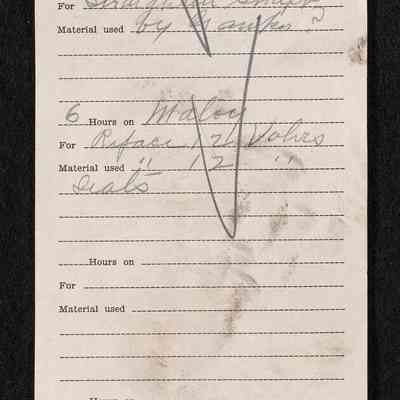 For Straighten
Material used by Tanks ?
6 Hours on Maloy
For Reface 12 Valves
Material used " 12 "
Seals
Hours on
For
Material used
Hours on